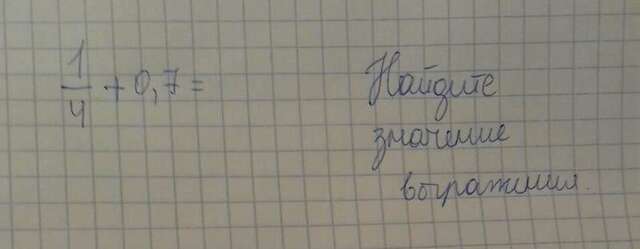 1/4 + 0,7 =
Найдите
значение
выражения.